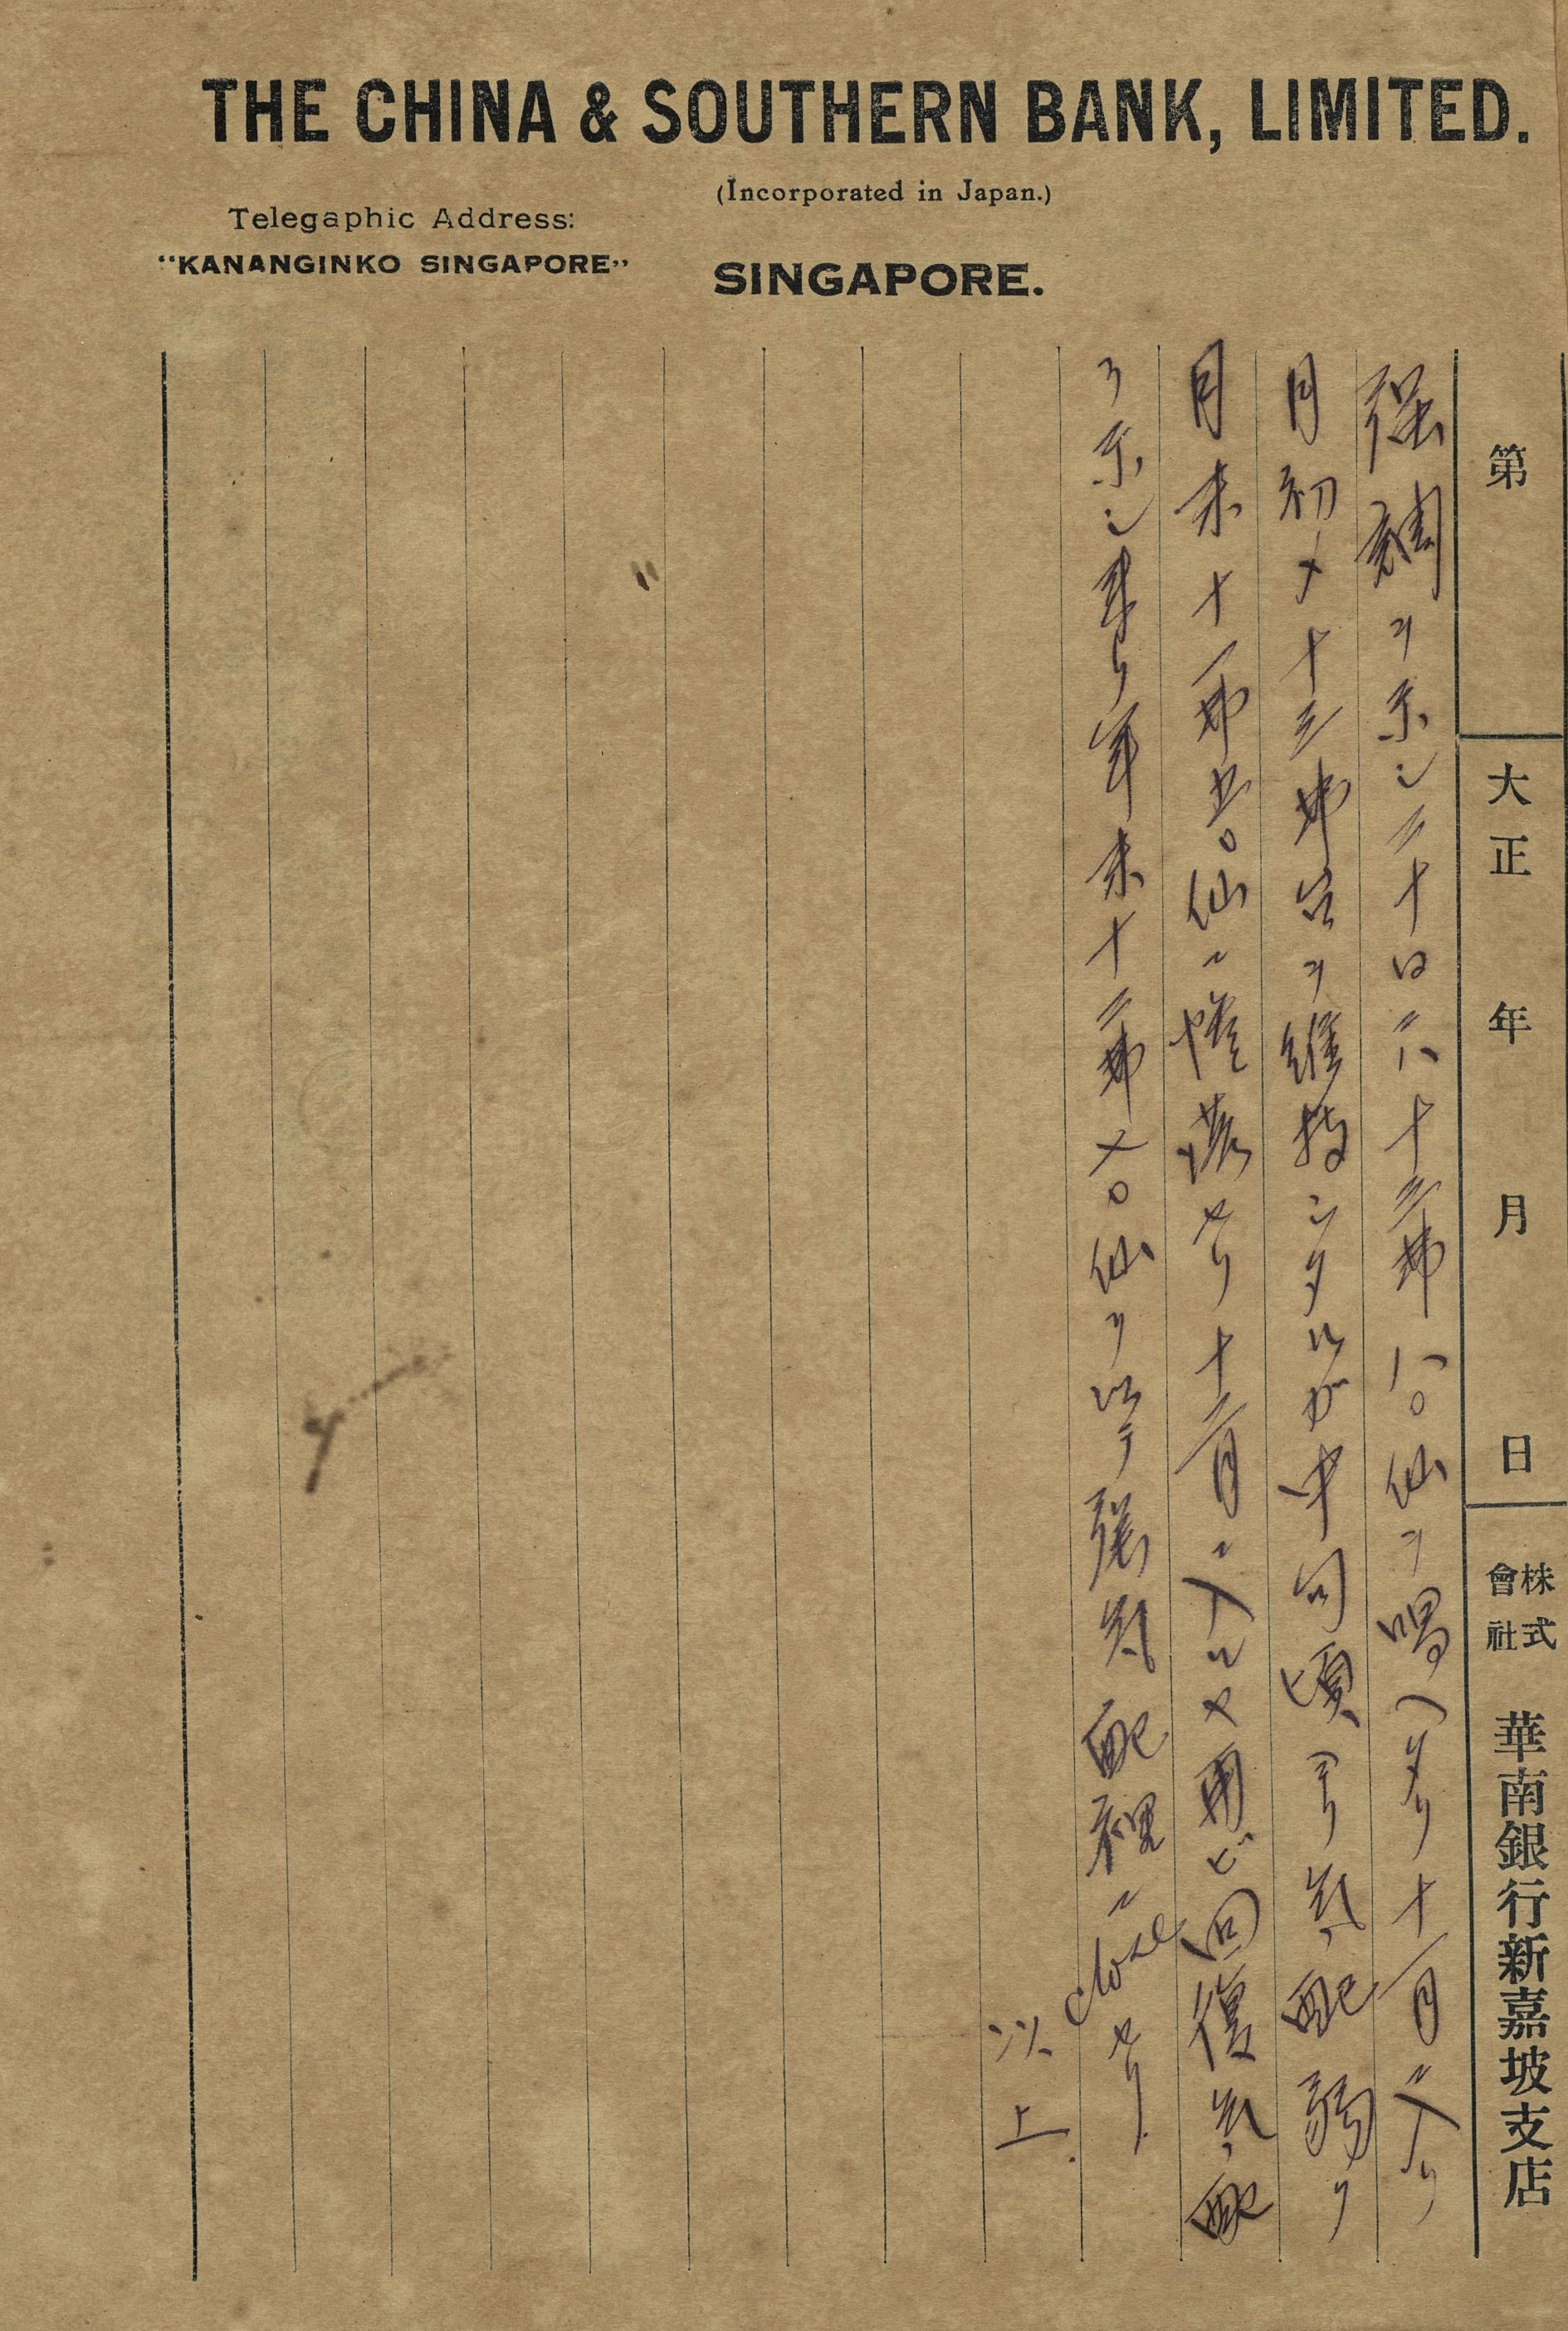 THE CHINA & SOUTHERN BANK, LIMITED.
(Incorporated in Japan.)
Telegaphic Address:
"KANANGINKO SINGAPORE"
SINGAPORE.
第 大正 年 月 日 株式會社 華南銀行新嘉坡支店
强調ヲ示シ二十四日ニハ十三弗八〇仙ヲ唱ヘタリ十一月ニ入リ
月初メ十三弗台ヲ維持シタルガ中旬頃ヨリ気配弱リ
月末十一弗五〇仙ニ惨落セリ十二月ニ入ルヤ再ビ回復気配
ヲ示シ来リ年末十二弗七〇仙ヲ以テ强気配裡ニcloseセリ.
以上.